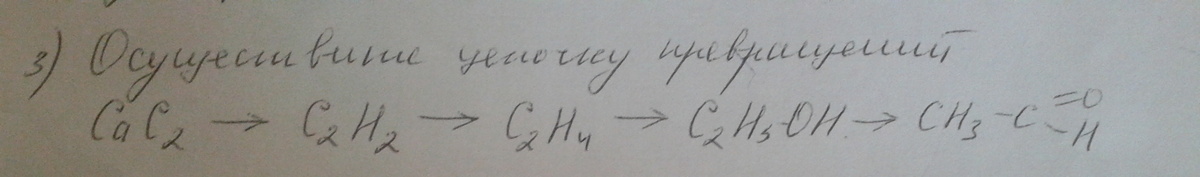 3) Осуществите цепочку превращений
CaC₂ → C₂H₂ → C₂H₄ → C₂H₅OH → CH₃-C=O-H